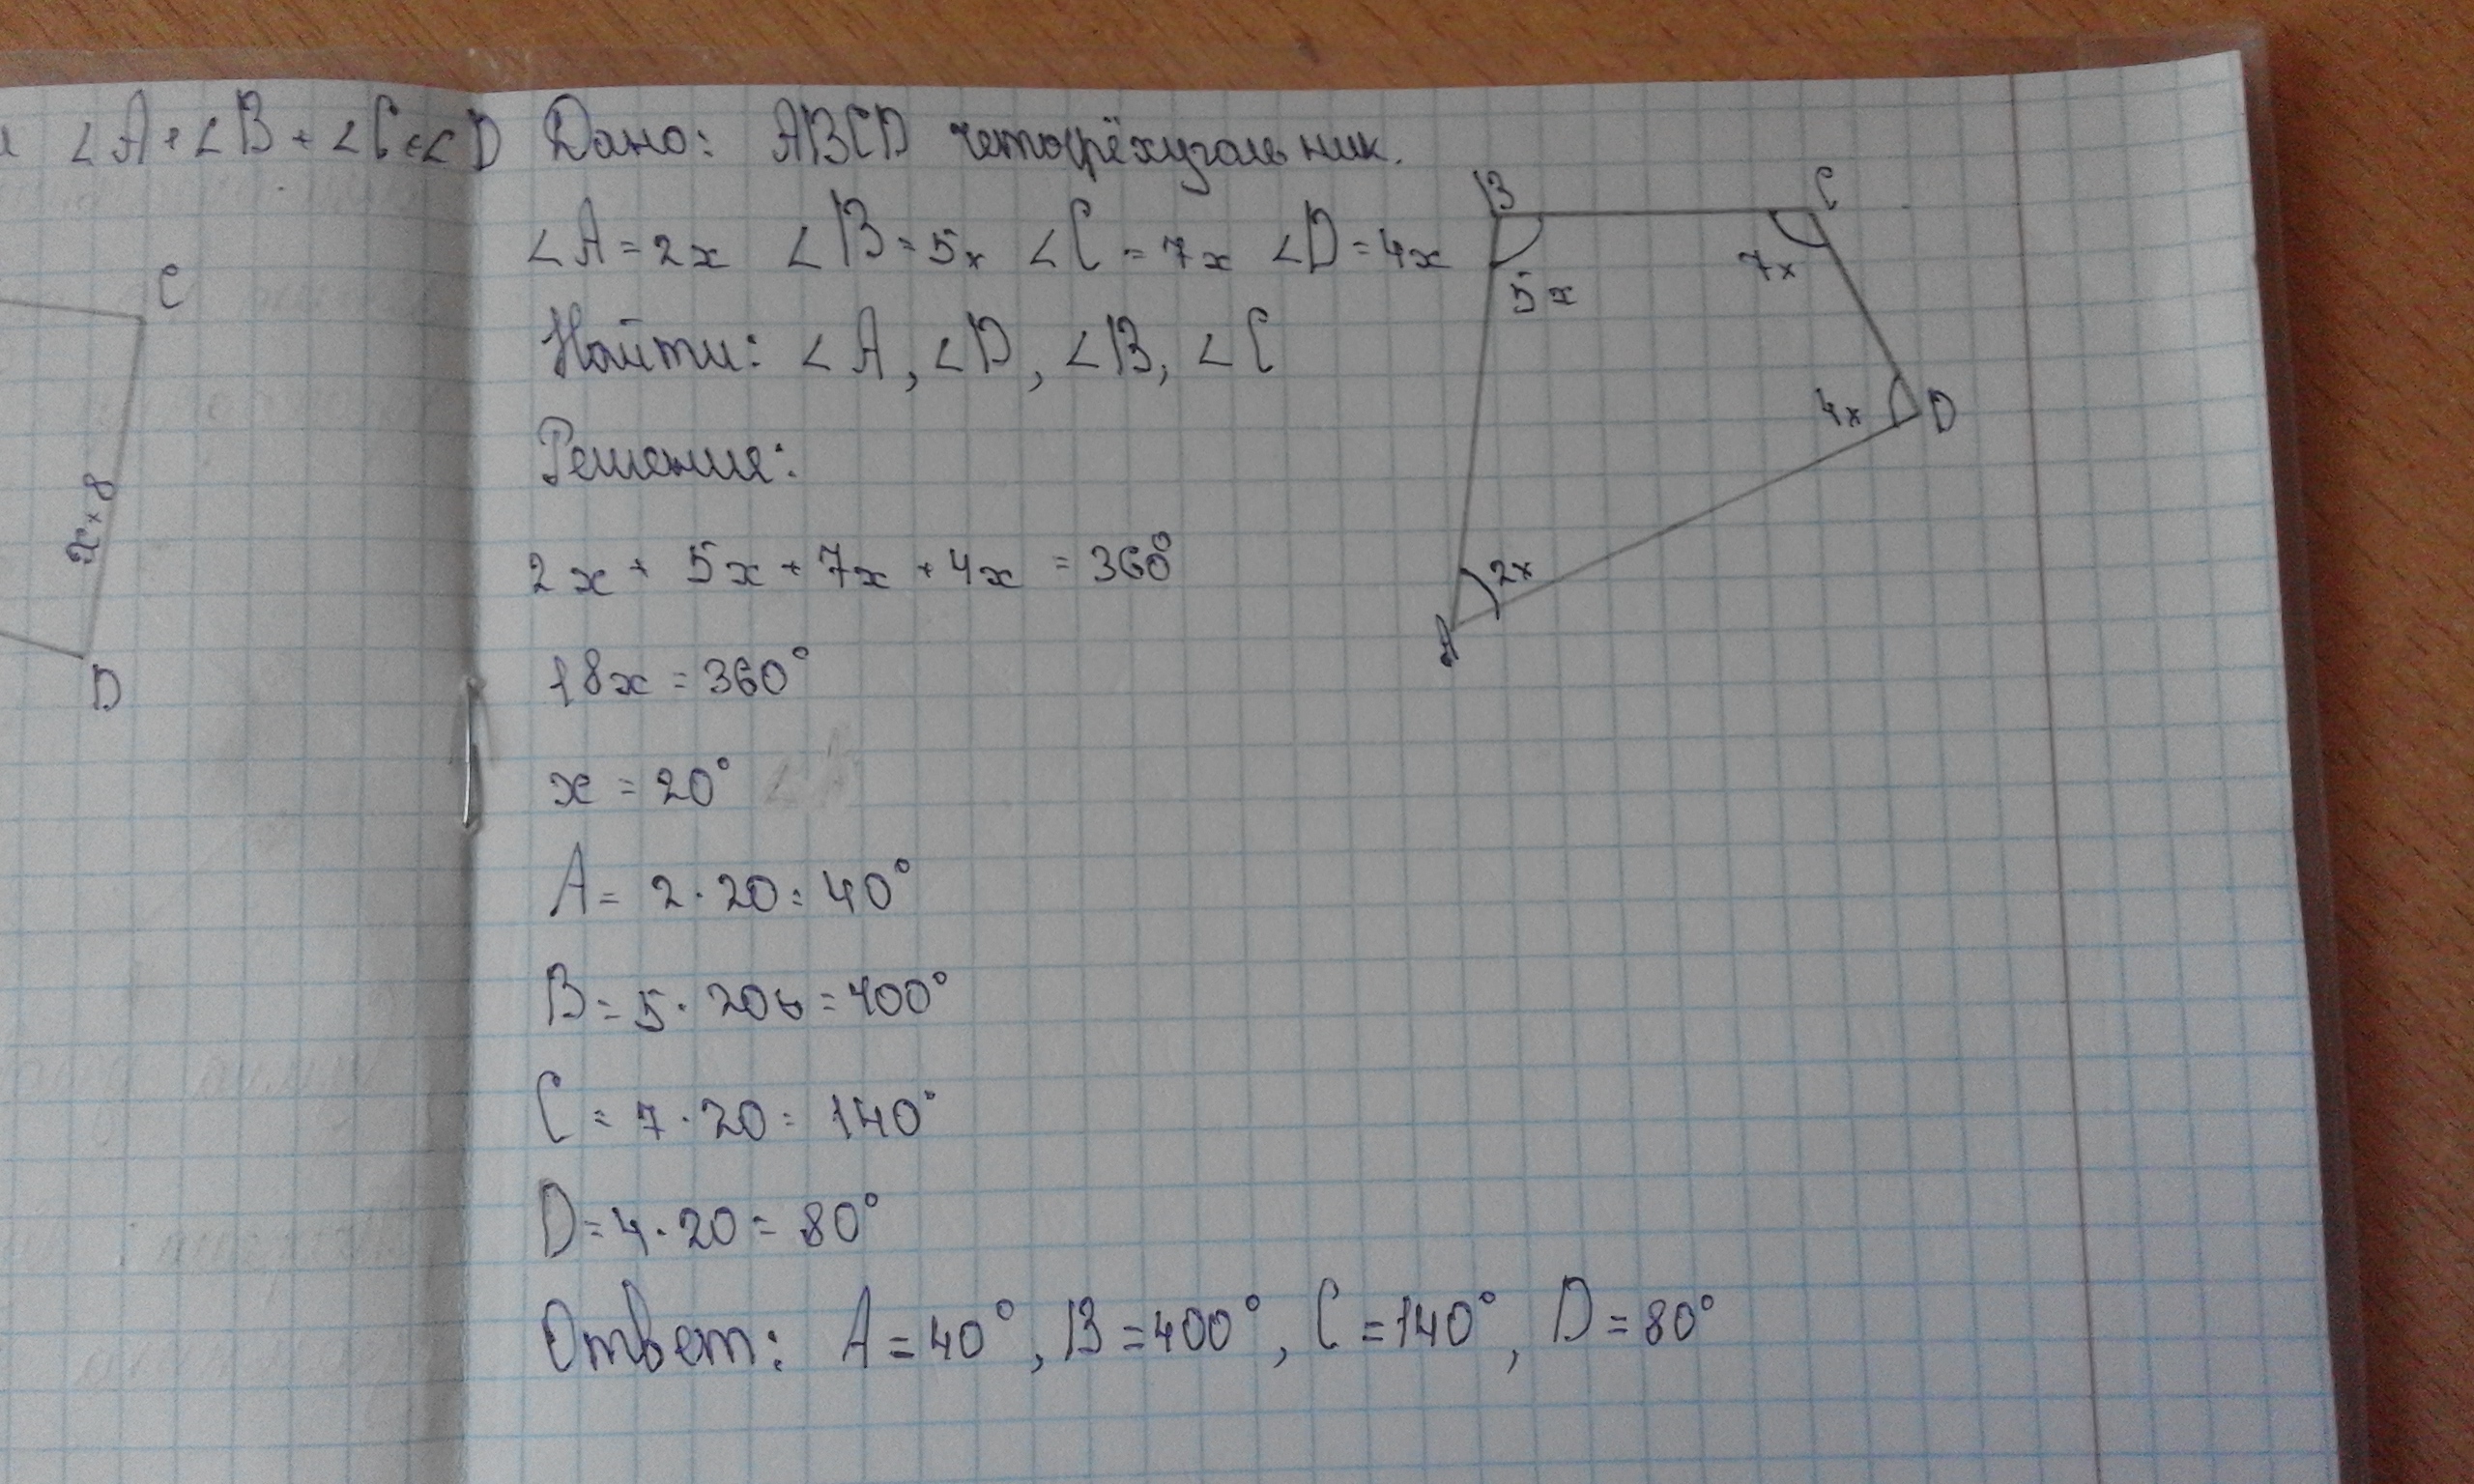 ∠A+∠B+∠C+∠D
C
x+8
D
Дано: ABCD четырёхугольник.
∠A=2x ∠B=5x ∠C=7x ∠D=4x
Найти: ∠A, ∠D, ∠B, ∠C
Решение:
2x + 5x + 7x + 4x = 360°
18x = 360°
x = 20°
A = 2·20 = 40°
B = 5·20 = 400°
C = 7·20 = 140°
D = 4·20 = 80°
Ответ: A = 40°, B = 400°, C = 140°, D = 80°
B
C
5x
7x
4x
D
2x
A